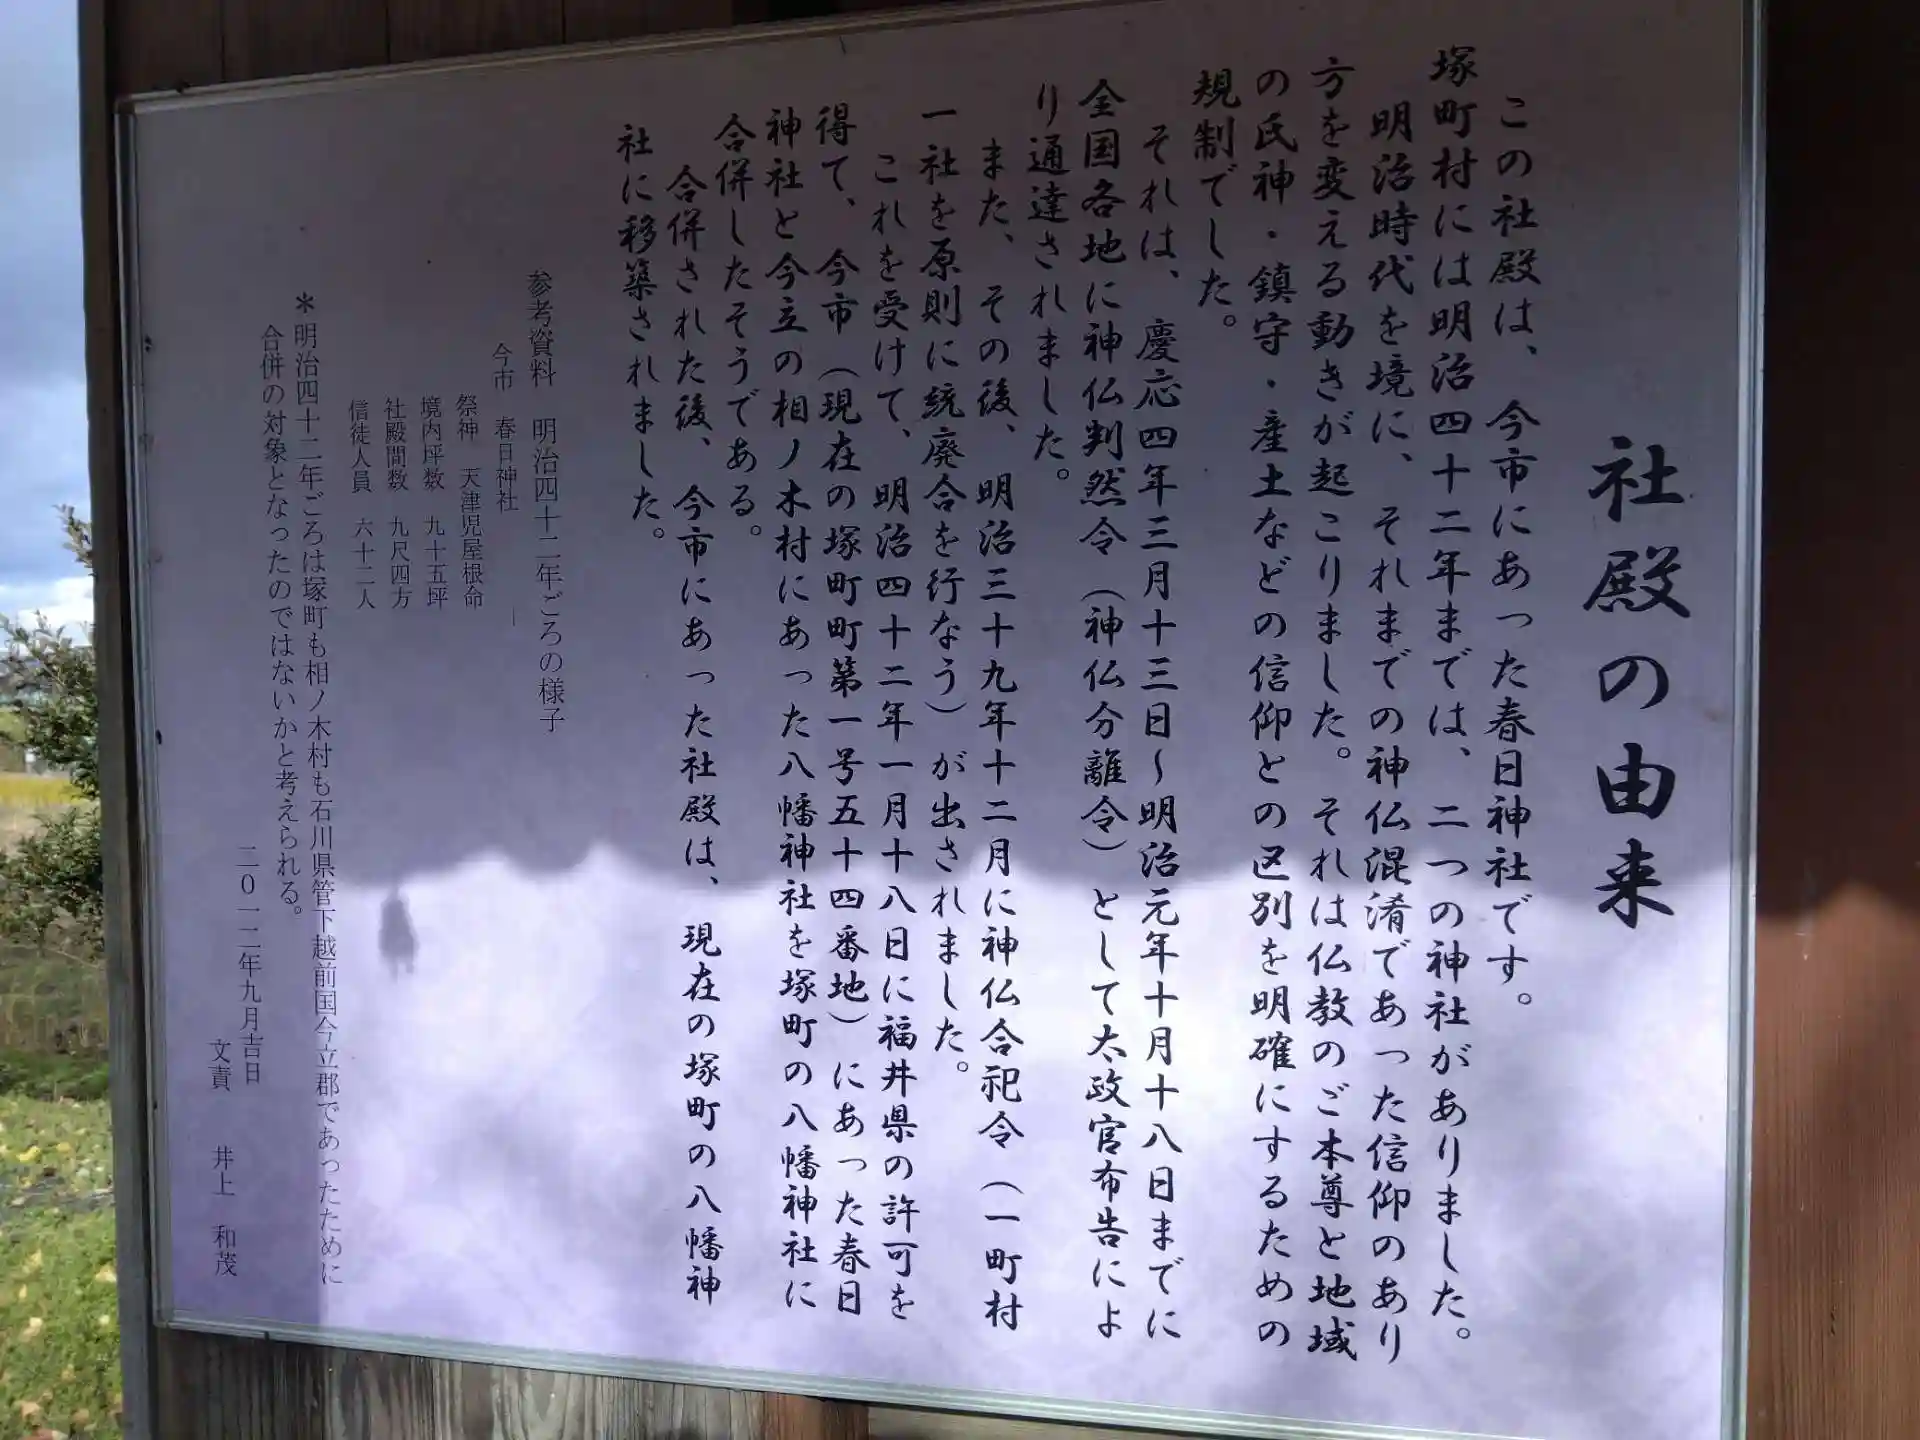 社殿の由来
この社殿は、今市にあった春日神社です。
塚町村には明治四十二年までは、二つの神社がありました。
明治時代を境に、それまでの神仏混淆であった信仰のあり
方を変える動きが起こりました。それは仏教のご本尊と地域
の氏神・鎮守・産土などの信仰との区別を明確にするための
規制でした。
それは、慶応四年三月十三日~明治元年十月十八日までに
全国各地に神仏判然令（神仏分離令）として太政官布告によ
り通達されました。
また、その後、明治三十九年十二月に神仏合祀令（一町村
一社を原則に統廃合を行なう）が出されました。
これを受けて、明治四十二年一月十八日に福井県の許可を
得て、今市（現在の塚町町第一号五十四番地）にあった春日
神社と今立の相ノ木村にあった八幡神社を塚町の八幡神社に
合併したそうである。
合併された後、今市にあった社殿は、現在の塚町の八幡神
社に移築されました。
参考資料　明治四十二年ごろの様子
今市　春日神社
祭神　天津児屋根命
境内坪数　九十五坪
社殿間数　九尺四方
信徒人員　六十二人
＊明治四十二年ごろは塚町も相ノ木村も石川県管下越前国今立郡であったために
合併の対象となったのではないかと考えられる。
二〇一二年九月吉日
文責　井上　和茂